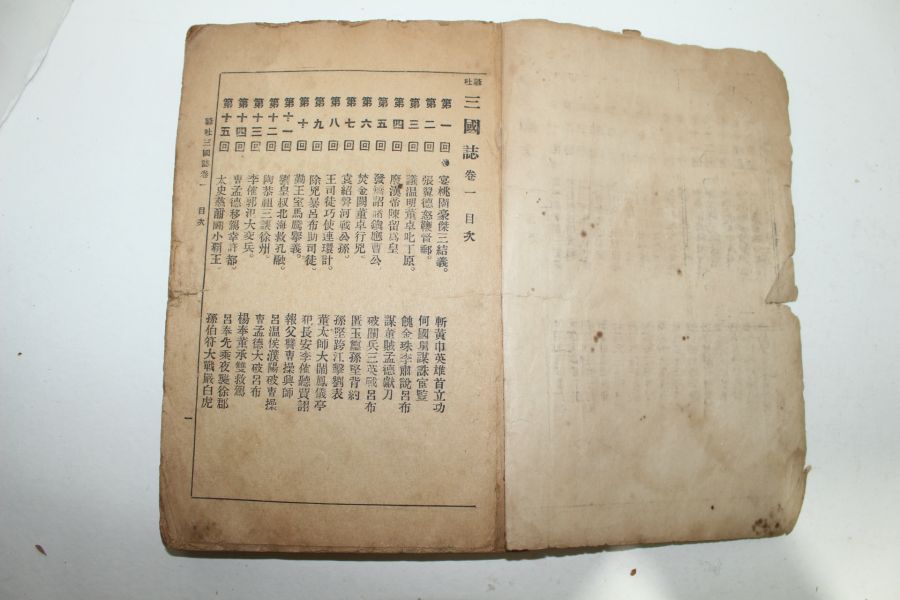 懸吐
三國誌 卷一 目次
第一回 宴桃園豪傑三結義。 斬黃巾英雄首立功
第二回 張翼德怒鞭督郵。 何國舅謀誅宦竪
第三回 議溫明董卓叱丁原。 餽金珠李肅說呂布
第四回 廢漢帝陳留爲皇。 謀董賊孟德獻刀
第五回 發矯詔諸鎭應曹公 破關兵三英戰呂布
第六回 焚金闕董卓行兇。 匿玉璽孫堅背約
第七回 袁紹磐河戰公孫。 孫堅跨江擊劉表
第八回 王司徒巧使連環計。 董太師大鬧鳳儀亭
第九回 除兇暴呂布助司徒。 犯長安李傕聽賈詡
第十回 勤王室馬騰擧義。 報父讐曹操興師
第十一回 劉皇叔北海救孔融。 呂溫侯濮陽破曹操
第十二回 陶恭祖三讓徐州。 曹孟德大破呂布
第十三回 李傕郭汜大交兵。 楊奉董承雙救駕
第十四回 曹孟德移駕幸許都。 呂奉先乘夜襲徐郡
第十五回 太史慈酣鬪小覇王。 孫伯符大戰嚴白虎
懸吐三國誌卷一 目次
一